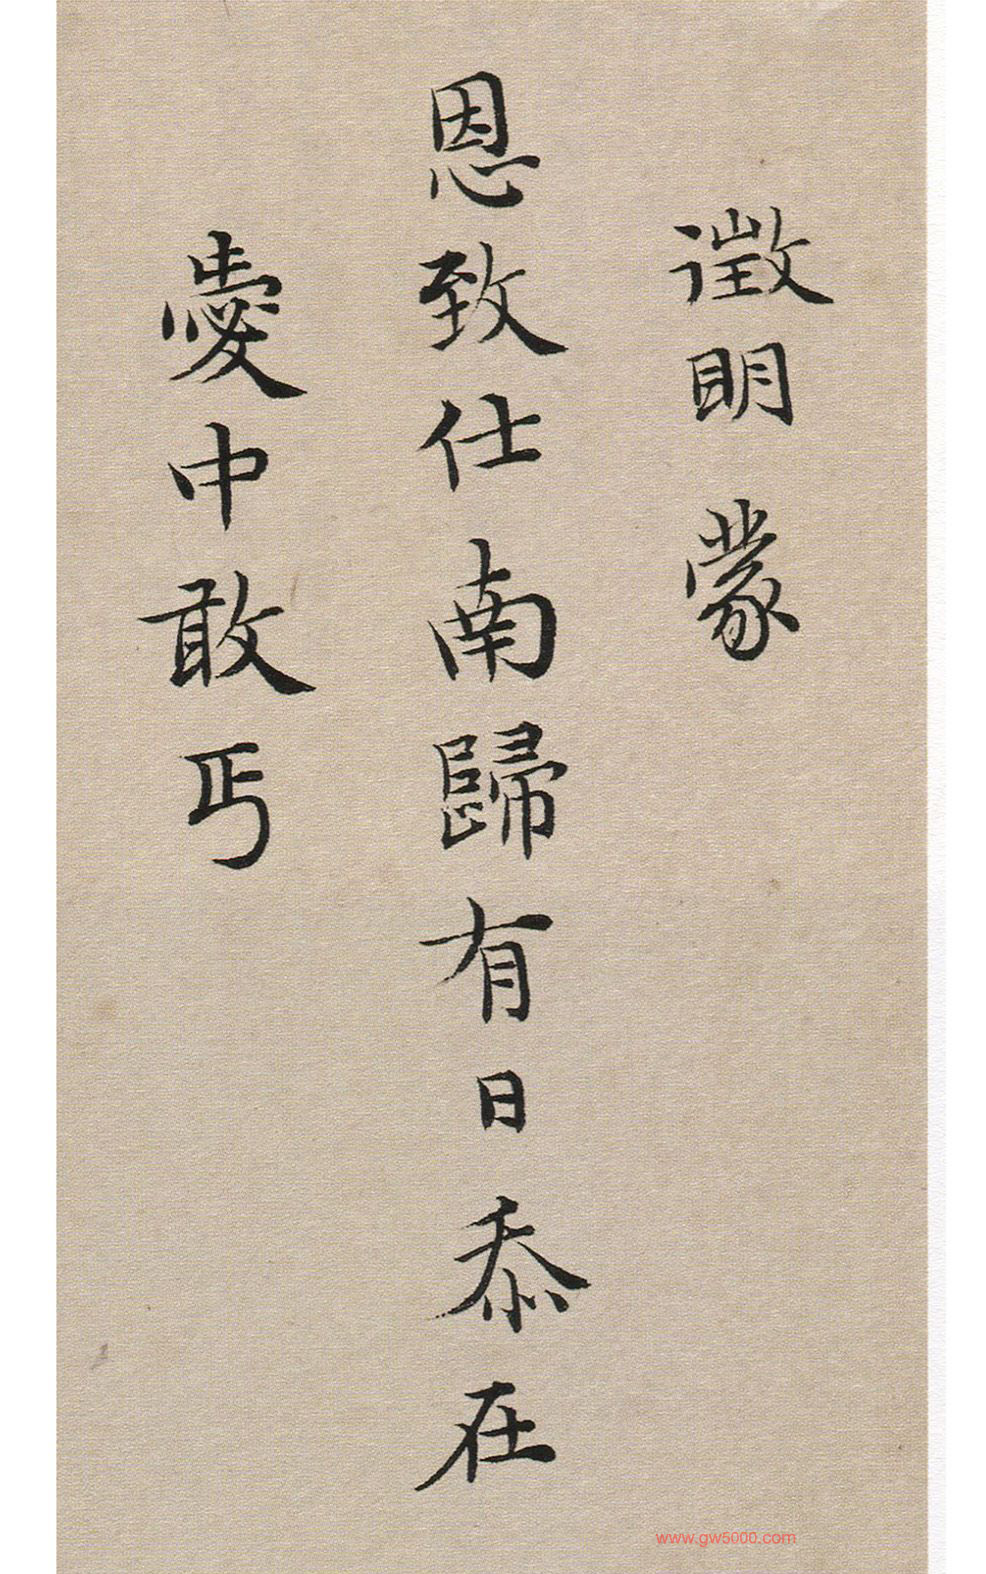 徵明蒙
恩致仕南歸有日忝在
愛中敢丐
www.gw5000.com